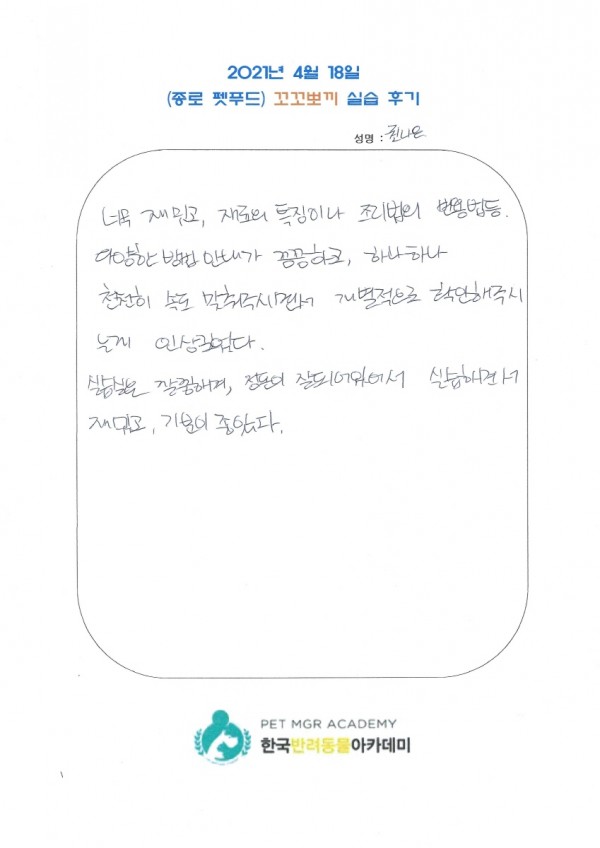 2021년 4월 18일
(종로 펫푸드) 꼬꼬뽀끼 실습 후기
성명 :
너무 재밌고, 재료의 특징이나 조리법의 변용법등.
다양한 방법 안내가 꼼꼼하고, 하나하나
천천히 속도 맞춰주시면서 개별적으로 확인해주시
는게 인상적였다.
실습실은 깔끔하며, 정돈이 잘되어있어서 실습하면서
재밌고, 기분이 좋았다.
PET MGR ACADEMY
한국반려동물아카데미